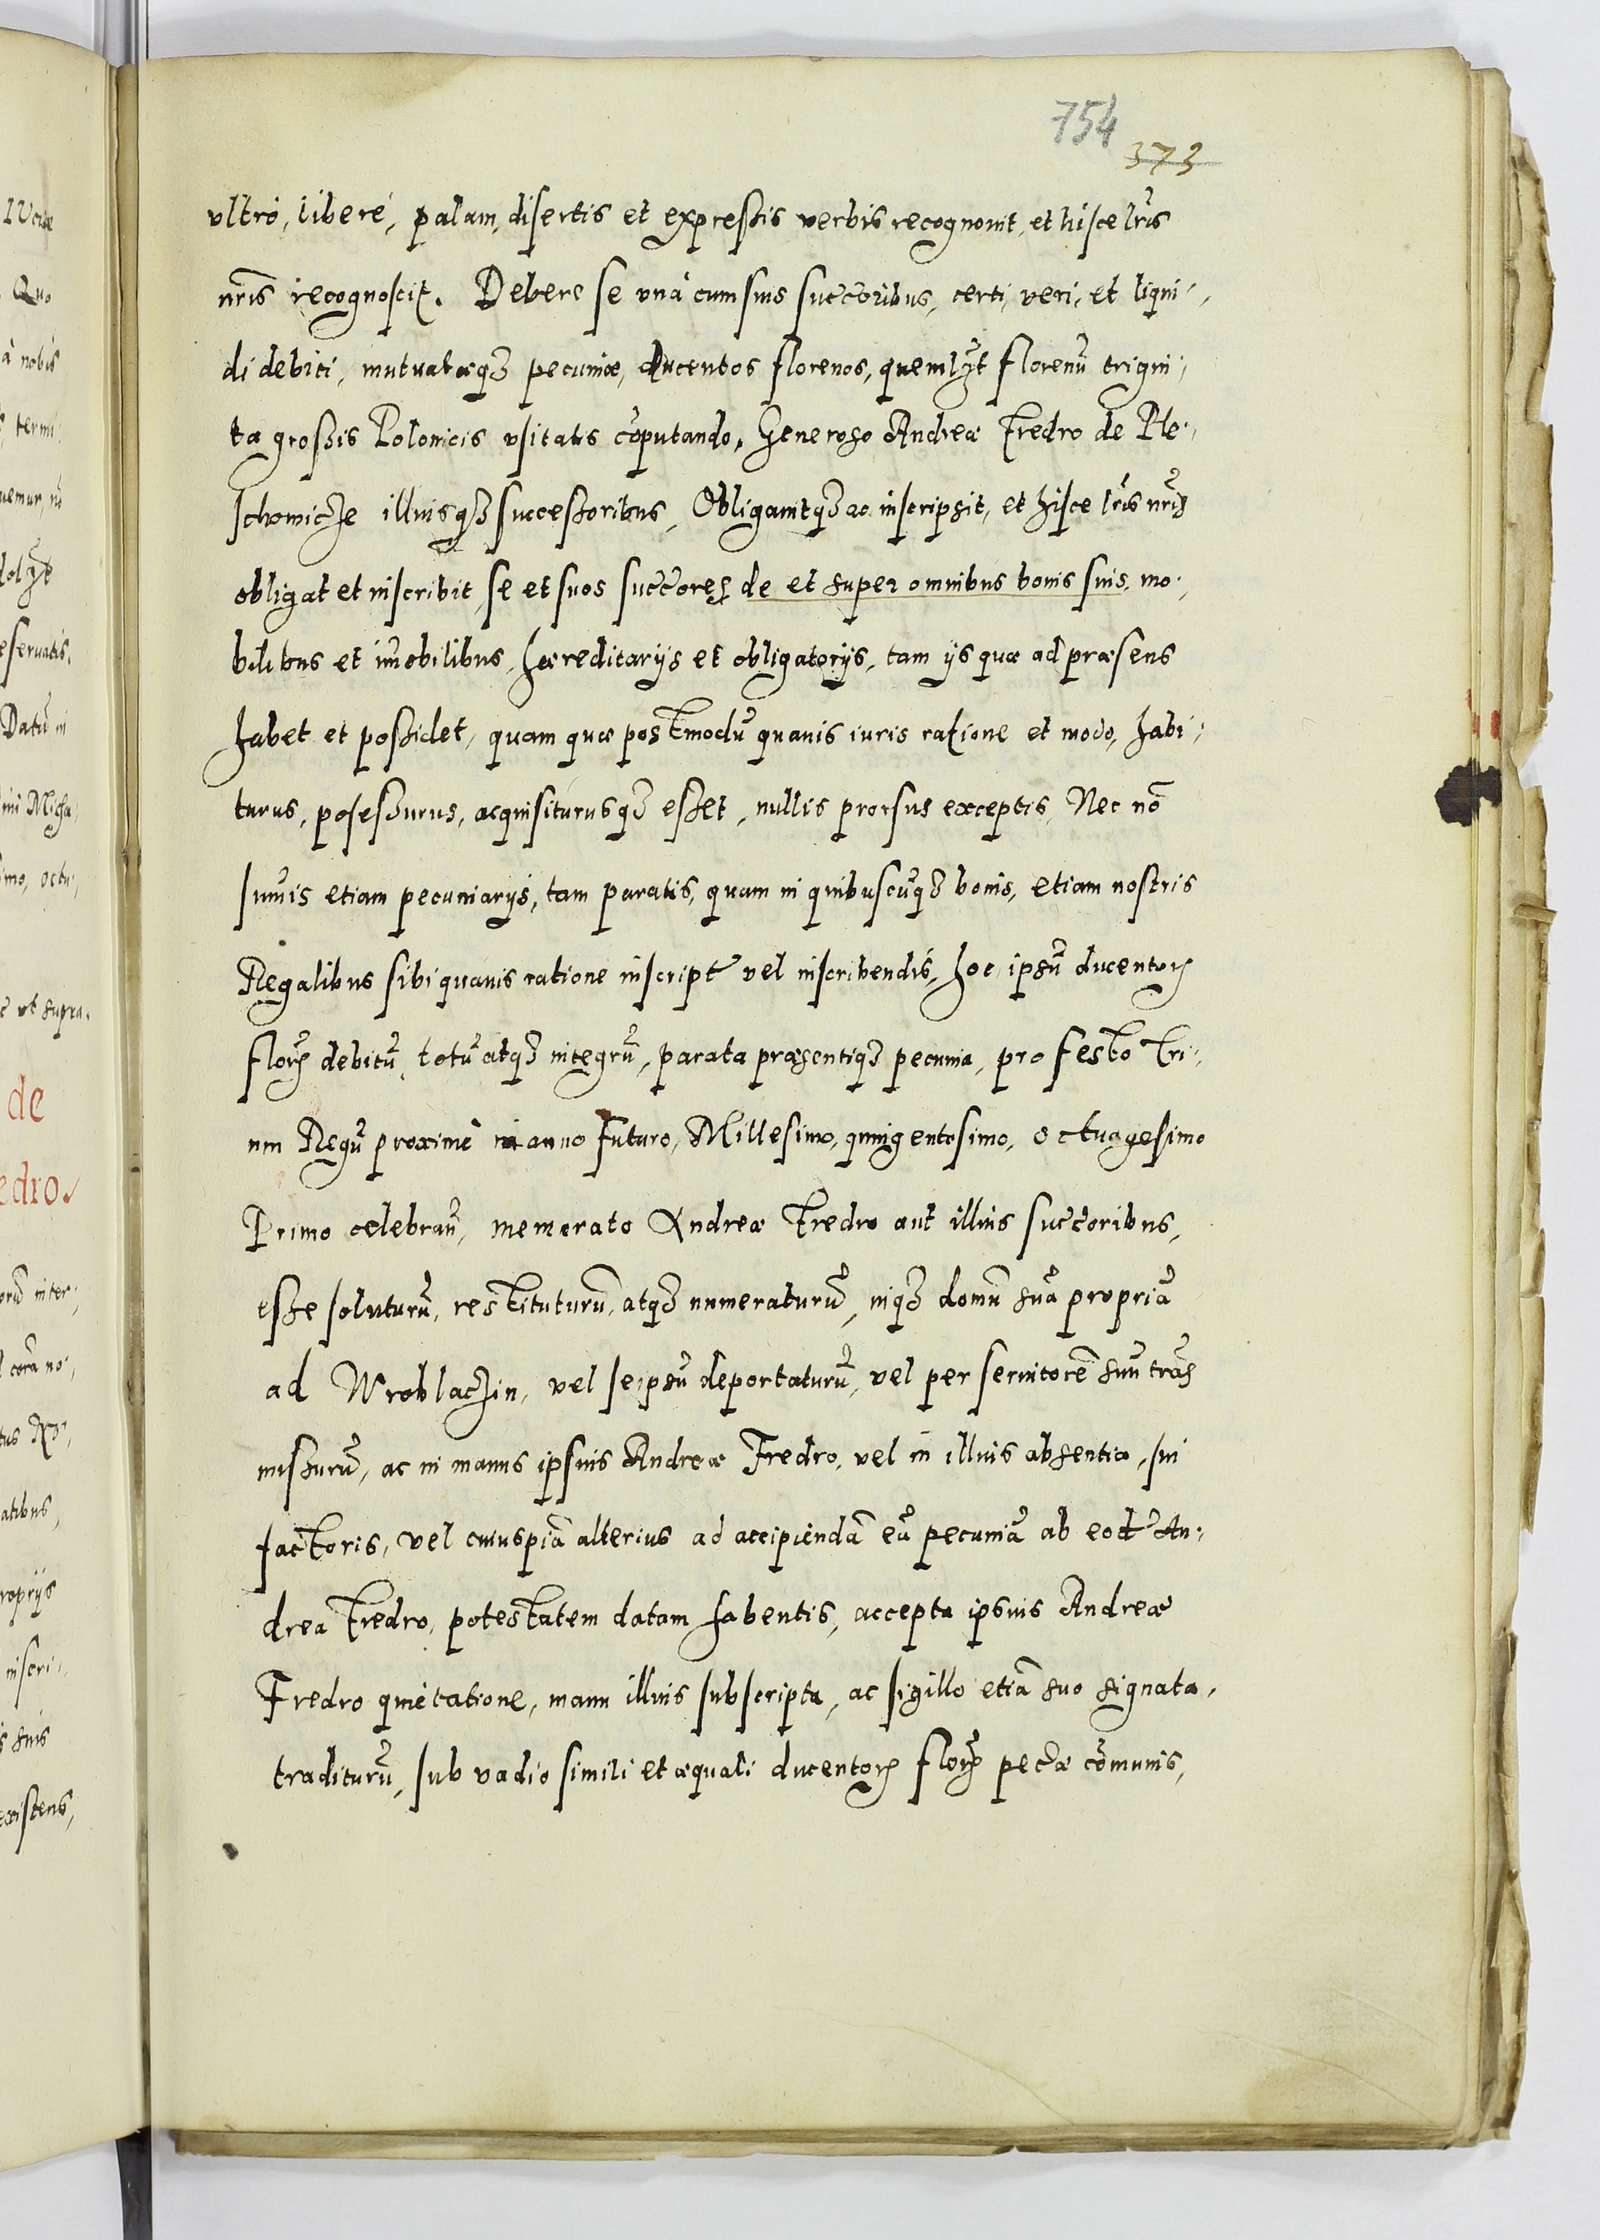 754
373
vltró, liberé, palam, disertis et expressis verbis recognouit, et hisce lr̃is
nr̃is recognoscit. Debere se vnà cum suis succ̃oribus, certi, veri, et liqui-
di debiti, mutuatæq3 pecuniæ, ducentos florenos, quemlʒt florenũ trigin-
ta grossis Polonicis vsitatis cõputando, Generoso Andreæ Fredro de Ple-
schowicze illiusq3 successoribus, Obligauitq3 ac inscripsit, et hisce lr̃is nr̃is
obligat et inscribit, se et suos succ̃ores de et super omnibus bonis suis, mo-
bilibus et im̃obilibus, hæreditarijs et obligatorijs, tam ijs quæ ad præsens
habet et possidet, quam quæ postmodũ quauis iuris ratione et modo, habi-
turus, posessurus, acquisiturusq3 esset, nullis prorsus exceptis, Nec nõ
sum̃is etiam pecuniarijs, tam paratis, quam in quibuscũq3 bonis, etiam nostris
Regalibus sibi quauis ratione inscript̃ vel inscribendis, hoc ipsũ ducentoꝝ
floꝝ debitũ, totũ atq3 integrũ, parata præsentiq3 pecunia, pro festo Tri-
um Regũ proximè in anno futuro, Millesimo, quingentesimo, octuagesimo
Primo celebrañ, memorato Andreæ Fredro aut illius succ̃oribus,
esse soluturũ, restituturũ, atq3 numeraturũ, inq3 domũ suã propriã
ad Wroblaczin, vel seipsũ deportaturũ, vel per seruitorẽ suũ trãs
missurũ, ac in manus ipsius Andreæ Fredro, vel in illius absentia, sui
factoris, vel cuiuspiã alterius ad accipiendã eã pecuniã ab eod̃ An-
drea Fredro, potestatem datam habentis, accepta ipsius Andreæ
Fredro quietatione, manu illius subscripta, ac sigillo etiã suo signata,
traditurũ, sub vadio simili et æquali ducentoꝝ floꝝ pec̃æ cõmunis,